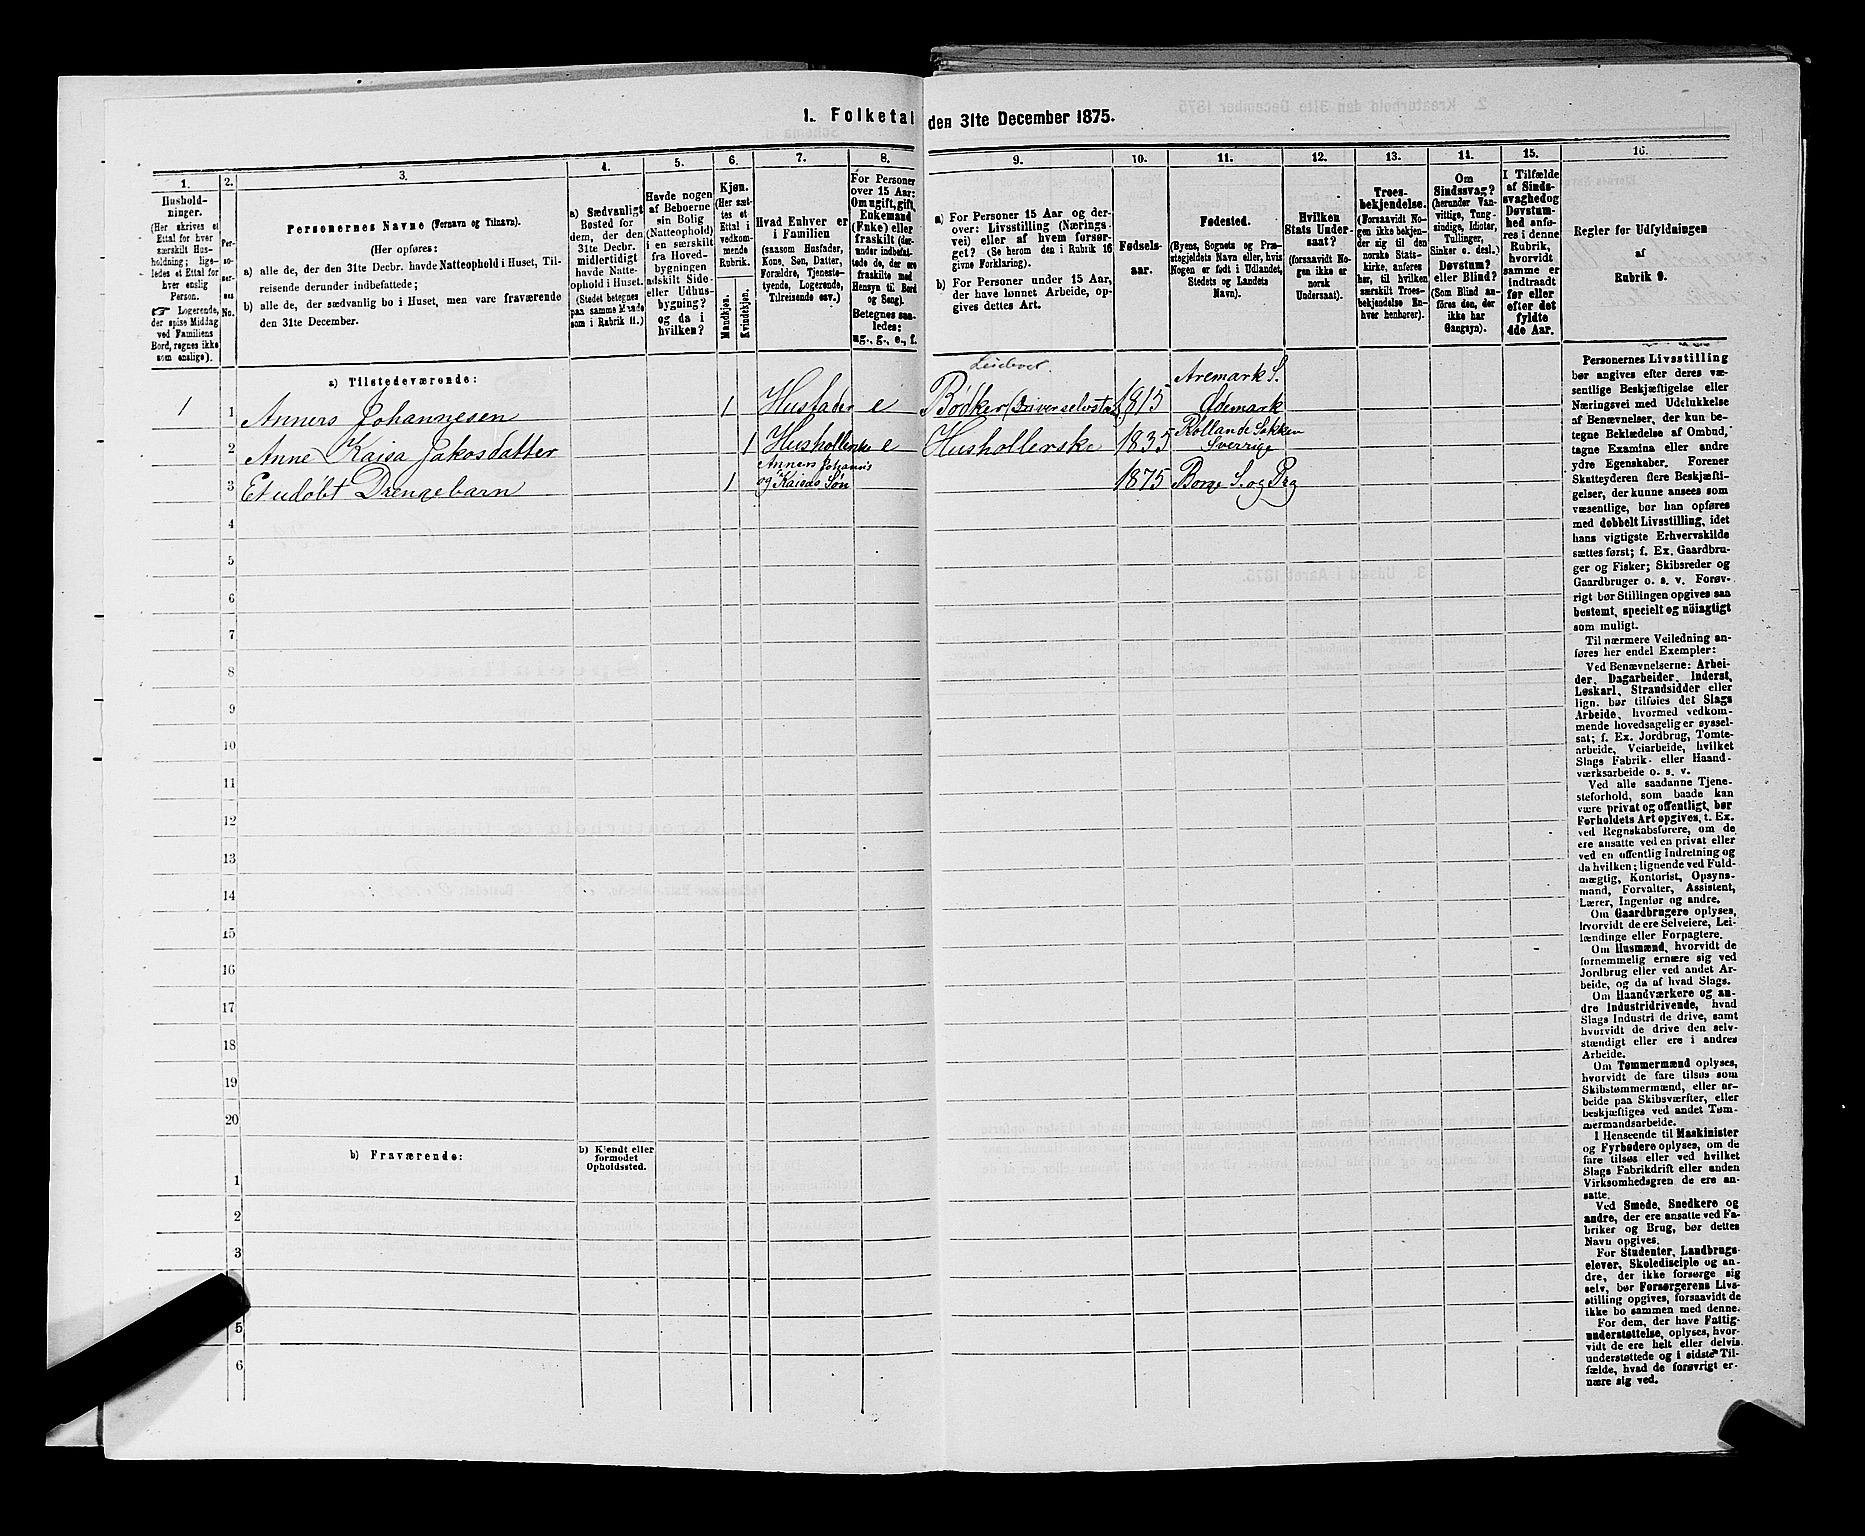 1. Folketal den 31te December 1875.
1.
2.
3.
4.
5.
6.
7.
8.
9.
10.
11.
12.
13.
14.
15.
16.
Hushold-
ninger.
(Her skrives et
Ettal for hver
særskilt Hus-
holdning; lige-
ledes et Ettal for
hver enslig
Person.
☞ Logerende,
der spise Middag
ved Familiens
Bord, regnes ikke
som enslige).
Per-
so-
ner-
nes
No.
Personernes Navne (Fornavn og Tilnavn).
(Her opføres:
a) alle de, der den 31te Decbr. havde Natteophold i Huset, Til-
reisende derunder indbefattede;
b) alle de, der sædvanlig bo i Huset, men vare fraværende
den 31te December.
a) Sædvanligt
Bosted for
dem, der den
31te Decbr.
midlertidigt
havde Natte-
ophold i Huset.
(Stedet betegnes
paa samme Maade
som i Rubrik 11.)
Havde nogen
af Beboerne
sin Bolig
(Natteophold)
i en særskilt
fra Hoved-
bygningen
adskilt Side-
eller Udhus-
bygning?
og da i
hvilken?
Kjøn.
(Her sæt-
tes et
Ettal i
vedkom-
mende
Rubrik.
Mandkjøn.
Kvindekjøn.
Hvad Enhver er
i Familien
(saasom Husfader,
Kone, Søn, Datter,
Forældre, Tjeneste-
tyende, Logerende,
Tilreisende osv.)
For Personer
over 15 Aar:
Om ugift, gift,
Enkemand
(Enke) eller
fraskilt (der-
under indbefat-
tede de, der ere
fraskilte med
Hensyn til Bord
og Seng).
Betegnes saa-
ledes:
ug., g., e., f.
a) For Personer 15 Aar og der-
over: Livsstilling (Nærings-
vei) eller af hvem forsør-
get? (Se herom den i Rubrik 16
givne Forklaring).
b) For Personer under 15 Aar,
der have lønnet Arbeide, op-
gives dettes Art.
Fødsels-
aar.
Fødested.
(Byens, Sognets og Præ-
stegjeldets Navn eller, hvis
Nogen er født i Udlandet,
Stedets og Landets
Navn).
Hvilken
Stats Under-
saat?
(forsaavidt No-
gen ikke er
norsk
Undersaat).
Troes-
bekjendelse.
(Forsaavidt No-
gen ikke bekjen-
der sig til den
norske Stats-
kirke, anføres
her, til hvilken
særskilt Troes-
bekjendelse En-
hver henhører).
Om
Sindssvag?
(herunder Van-
vittige, Tung-
sindige, Idioter,
Tullinger,
Sinker o. desl.)
Døvstum?
eller Blind?
(Som Blind an-
føres den, der
ikke har
Gangsyn).
I Tilfælde
af Sinds-
svaghed og
Døvstum-
hed anfø-
res i denne
Rubrik,
hvorvidt
samme er
indtraadt
før eller
efter det
fyldte
4de Aar.
Regler for Udfyldningen
af
Rubrik 9.
a) Tilstedeværende:
1 1 Anners Johannesen 1 Husfader e Bødker 1815 Aremark S. Ødemark
2 Anne Kaisa Jakosdatter 1 e Hushollerske 1835 Sverrige
3 Et udobt Drengebarn 1 og Kaisas Søn 1875 Borge S. og Prg
4
5
6
7
8
9
10
11
12
13
14
15
16
17
18
19
20
b) Fraværende:
b) Kjendt eller
formodet
Opholdssted.
1
2
3
5
6
Personernes Livsstilling
bør angives efter deres væ-
sentlige Beskjæftigelse eller
Næringsvei med Udelukkelse
af Benævnelser, der kun be-
tegne Beklædelse af Ombud,
tagne Examina eller andre
ydre Egenskaber. Forener
Skatteyderen flere Beskjæfti-
gelser, der kunne ansees som
væsentlige, bør han opføres
med dobbelt Livsstilling, idet
hans vigtigste Erhvervskilde
sættes først; f. Ex. Gaardbru-
ger og Fisker; Skibsreder og
Gaardbruger o. s. v. Forøv-
rigt bør Stillingen opgives saa
bestemt, specielt og nöiagtigt
som muligt.
Til nærmere Veiledning an-
føres her endel Exempler:
Ved Benævnelserne: Arbei-
der, Dagarbeider, Inderst,
Løskarl, Strandsidder eller
lign. bør tilføies det Slags
Arbeide, hvormed vedkom-
mende hovedsagelig er syssel-
sat; f. Ex. Jordbrug, Tomte-
arbeide, Veiarbeide, hvilket
Slags Fabrik- eller Haand-
værksarbeide o. s. v.
Ved alle saadanne Tjene-
steforhold, som baade kan
være privat og offentligt, bør
Forholdets Art opgives, t. Ex.
ved Regnskabsførere, om de
ere ansatte ved en privat eller
ved en offentlig Indretning og
da hvilken; lignende ved Fuld-
mægtig, Kontorist, Opsyns-
mand, Forvalter, Assistent,
Lærer, Ingeniør og andre.
Om Gaardbrugere oplyses,
hvorvidt de ere Selveiere, Lei-
lændinge eller Forpagtere.
Om Husmænd, hvorvidt de
fornemmelig ernære sig ved
Jordbrug eller ved andet Ar-
beide, og da af hvad Slags.
Om Haandværkere og an-
dre Industridrivende, hvad
Slags Industri de drive, samt
hvorvidt de drive den selv-
stændigt eller ere i andres
Arbeide.
Om Tømmermænd oplyses,
hvorvidt de fare tilsøs som
Skibstømmermænd, eller ar-
beide paa Skibsværfter, eller
beskjæftiges ved andet Tøm-
mermandsarbeide.
I Henseende til Maskinister
og Fyrbødere oplyses, om de
fare tilsøs eller ved hvilket
Slags Fabrikdrift eller anden
Virksomhedsgren de ere an-
satte.
Ved Smede, Snedkere og
andre, der ere ansatte ved Fa-
briker og Brug, bør dettes
Navn opgives.
For Studenter, Landbrugs-
elever, Skoledisciple og an-
dre, der ikke forsørge sig
selv, bør Forsørgerens Livs-
stilling opgives, forsaavidt de
ikke bo sammen med denne.
For dem, der have Fattig-
understøttelse, oplyses, hvor-
vidt de ere helt eller delvis
understøttede og i sidste Til-
fælde, hvad de forøvrigt er-
nære sig ved.